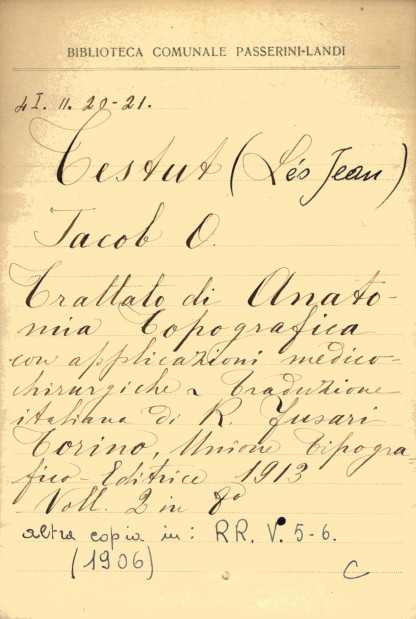 BIBLIOTECA COMUNALE PASSERINI-LANDI
4 I. 11. 20-21.
Testut (Lés Jean)
Jacob O.
Trattato di Anato-
mia topografica
con applicazioni medico-
chirurgiche ~ Traduzione
italiana di R. Fusari
Torino, Unione Tipogra-
fico-Editrice 1913
Voll. 2 in 8°
altra copia in: RR. V. 5-6.
(1906)
C